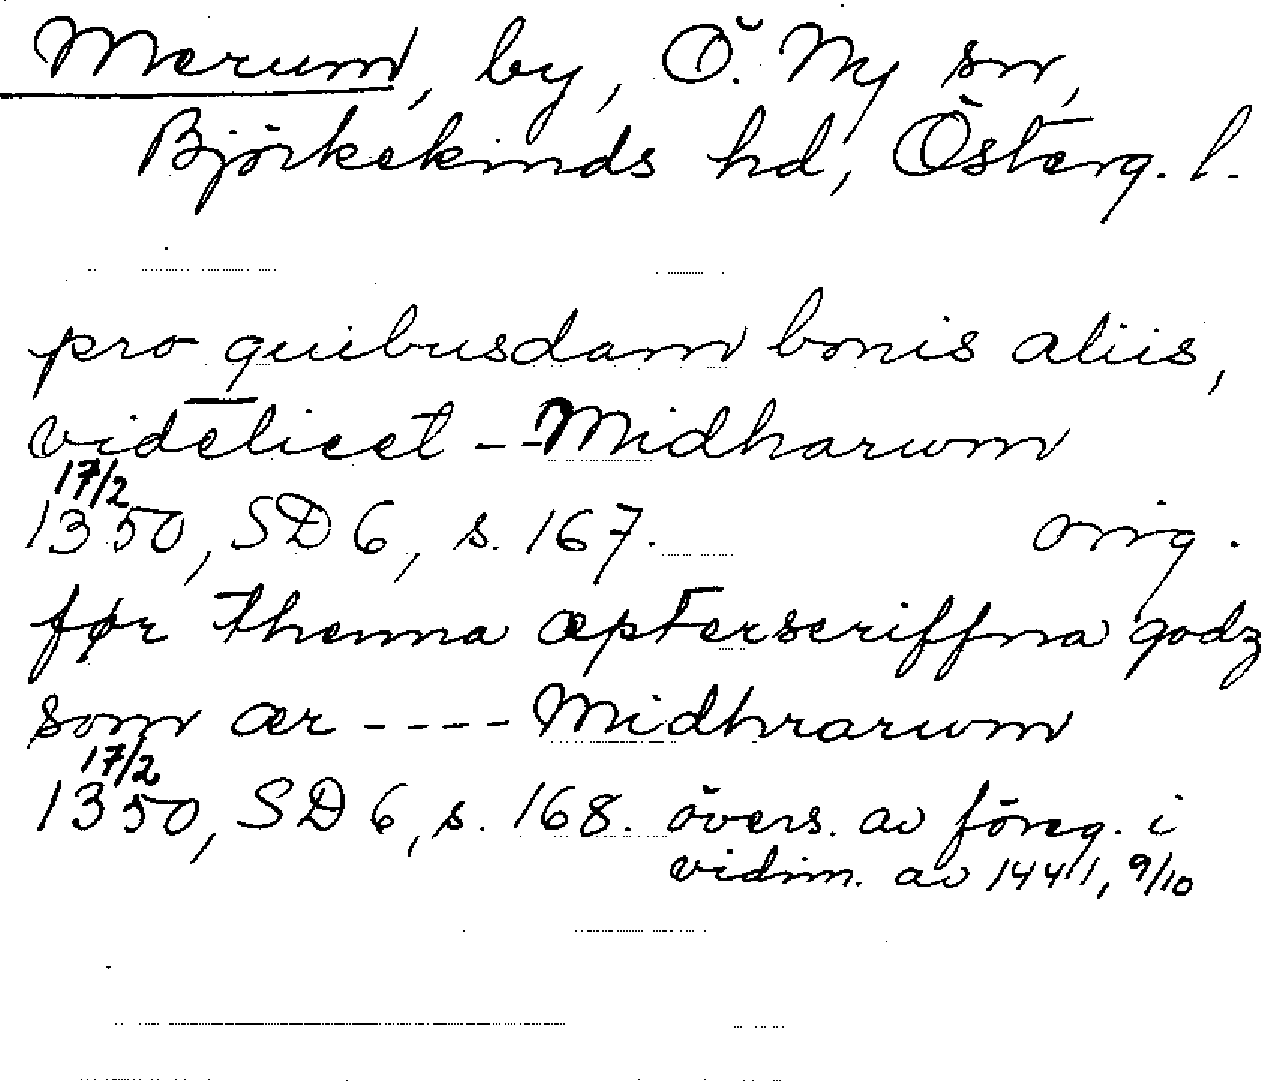 Merum, by, Ö. Ny sn,
Björkekinds hd, Österg. l.
pro quibusdam bonis aliis,
videlicet - - Midharum
17/2
1350, SD 6, s. 167. orig.
før thenna æpterscriffna godz
som ær - - - - Midhrarum
17/2
1350, SD 6, s. 168. övers. av föreg. i
vidim. av 1441, 9/10